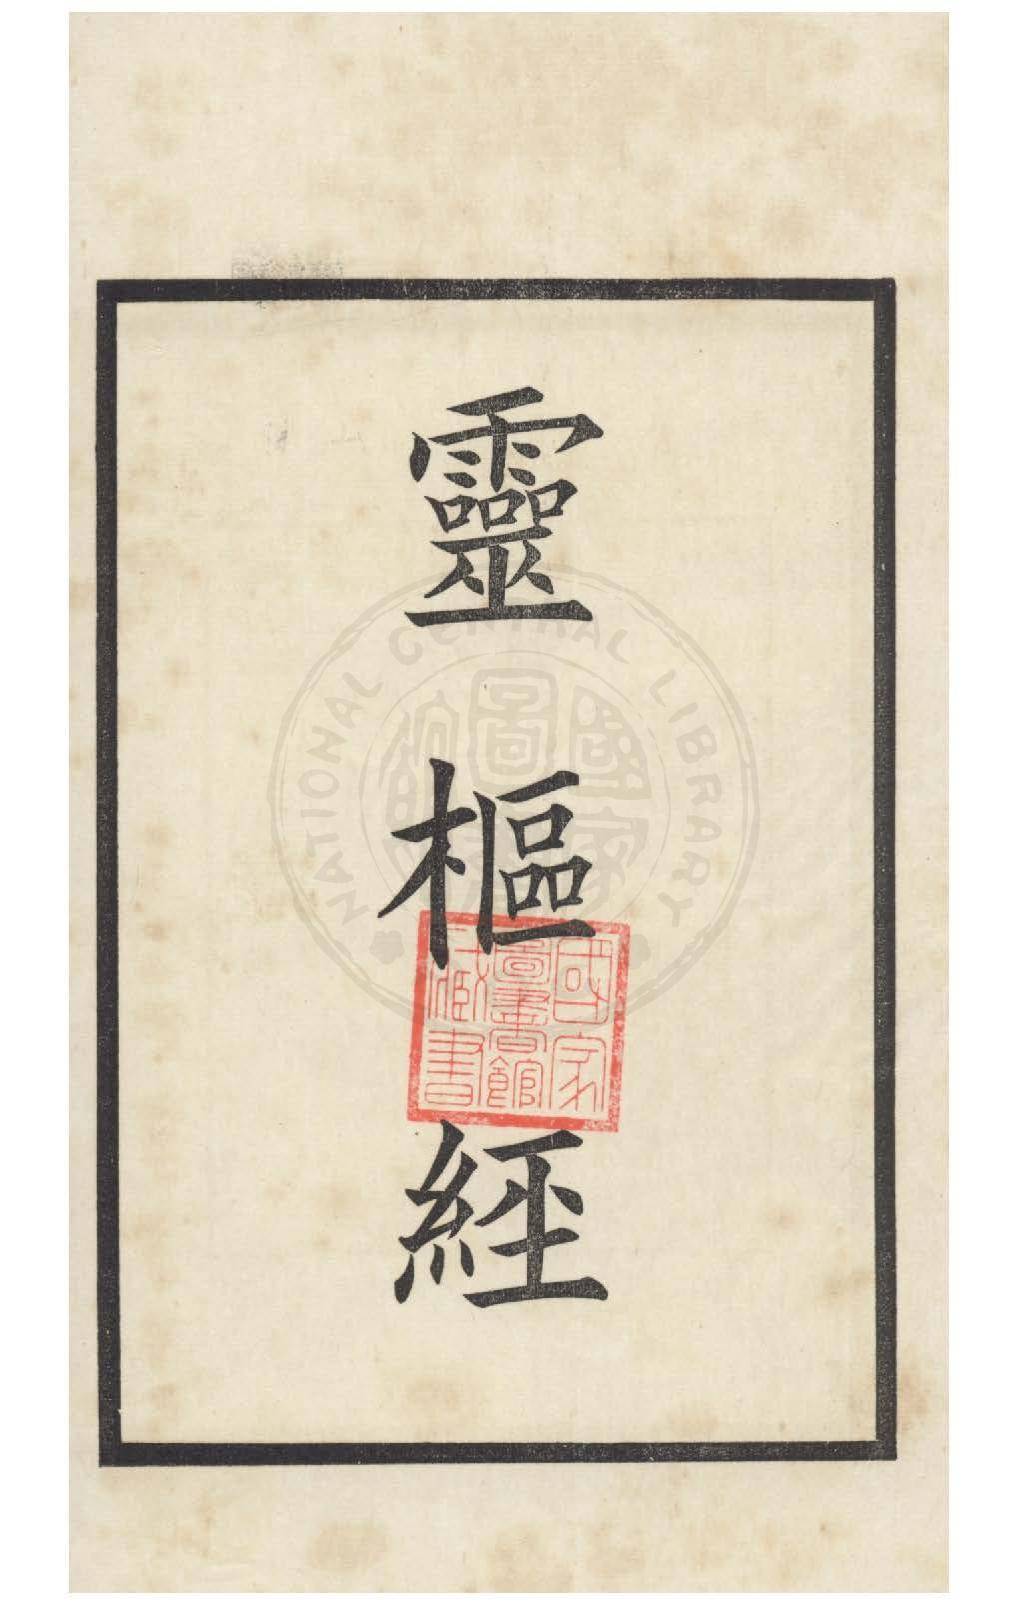 靈樞經
國家
圖書館
藏書
NATIONAL CENTRAL LIBRARY
國家
圖